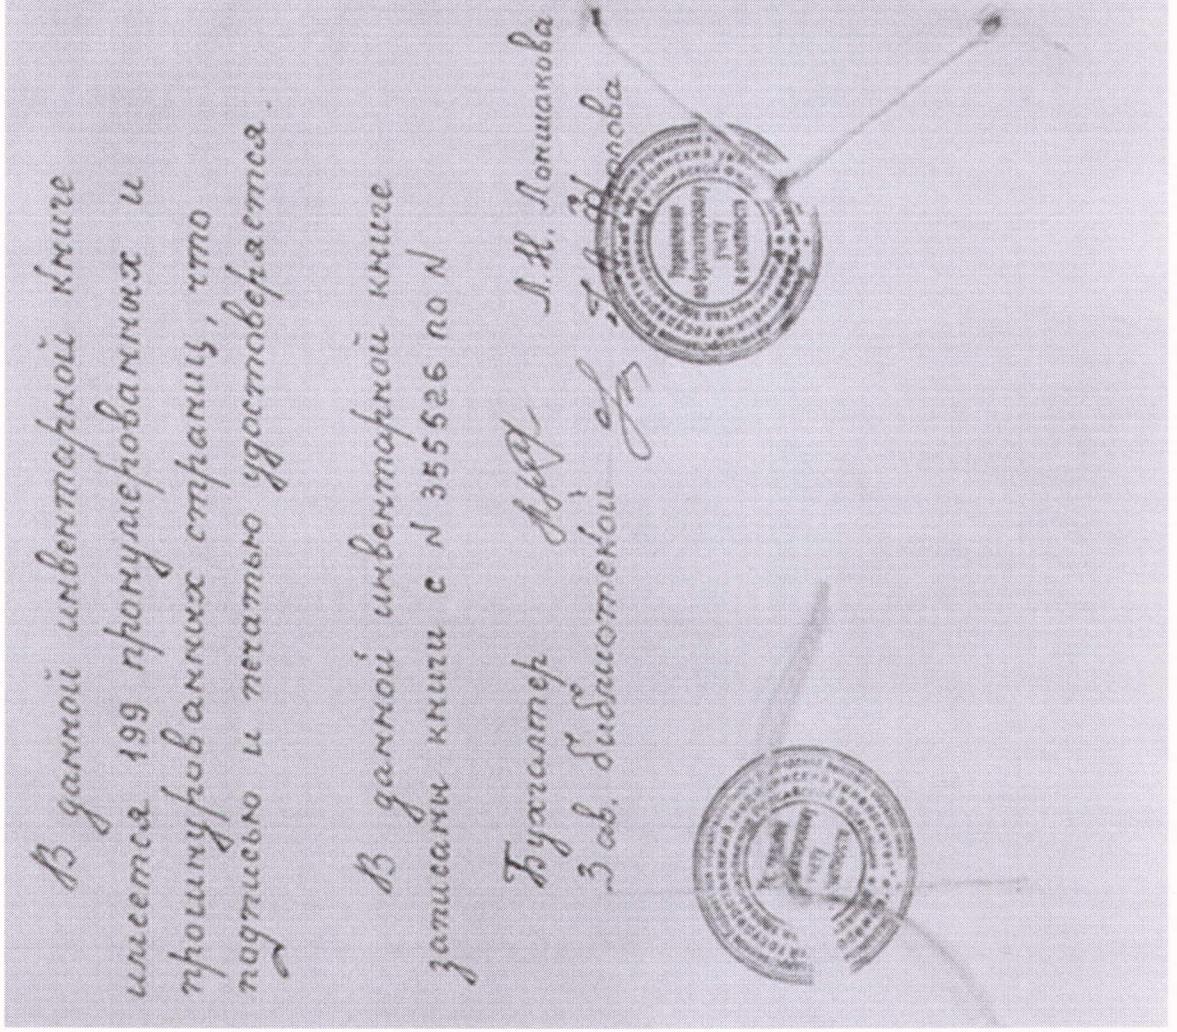 В данной инвентарной книге
имеется 199 пронумерованных и
прошнурованных страниц, что
подписью и печатью удостоверяется.
В данной инвентарной книге
записаны книги с N 355526 по N
Бухгалтер Л.Н. Лоншакова
Зав. библиотекой
Управление
по бухгалтерскому
учету
и отчетности